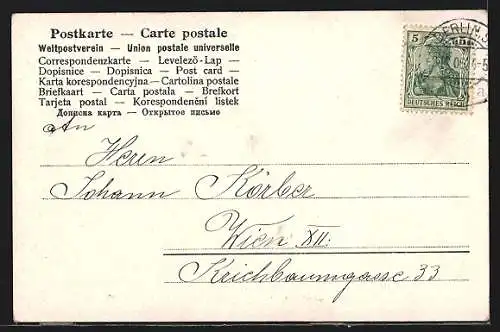 Postkarte — Carte postale
Weltpostverein — Union postale universelle
Correspondenzkarte — Levelező-Lap —
Dopisnice — Dopisnica — Post card —
Karta korespondencyjna — Cartolina postale
Briefkaart — Carta postala — Brefkort
Tarjeta postal — Korespondenční lístek
Дописна карта — Открытое письмо
BERLIN
5
DEUTSCHES REICH
An
Herrn
Johann Körber
Wien XII.
Reichbaumgasse 33